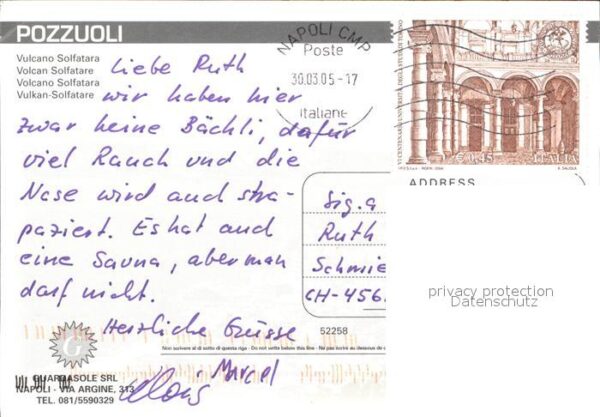 POZZUOLI
Vulcano Solfatara
Volcan Solfatare
Volcano Solfatara
Vulkan-Solfatare
NAPOLI CMP
Poste
30.03.05-17
Italiane
VI CENTENARIO UNIVERSITÀ DEGLI STUDI DI TORINO
€ 0,45 ITALIA
Liebe Ruth
wir haben hier
zwar keine Bächli, dafür
viel Rauch und die
Nase wird auch stra-
paziert. Es hat auch
eine Sauna, aber man
darf nicht.
Herzliche Grüsse
Marcel
ADDRESS
Sig.a
Ruth
Schmie
CH-456
privacy protection
Datenschutz
52258
Non scrivere al di sotto di questa riga - Do not write below this line - Ne pas écrire au dessous de
G
GUARDASOLE SRL
NAPOLI - VIA ARGINE, 313
TEL. 081/5590329